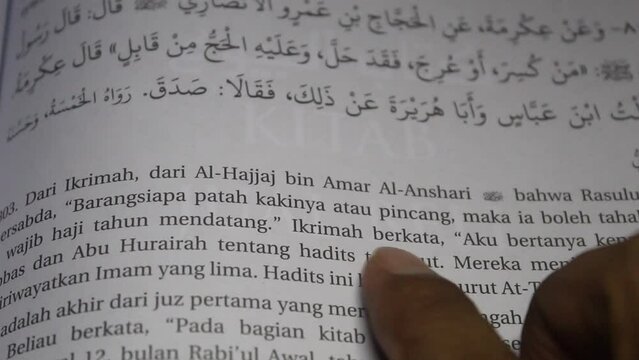 ٨- وَعَنْ عِكْرِمَةَ، عَنِ الْحَجَّاجِ بْنِ عَمْرٍو الْأَنْصَارِيِّ ﷺ قَالَ: قَالَ رَسُولُ
ﷺ: «مَنْ كُسِرَ، أَوْ عُرِجَ، فَقَدَ حَلَّ، وَعَلَيْهِ الْحَجُّ مِنْ قَابِلٍ» قَالَ عِكْرِمَةُ
ابْنَ عَبَّاسٍ وَأَبَا هُرَيْرَةَ عَنْ ذَلِكَ، فَقَالَا: صَدَقَ. رَوَاهُ الْخَمْسَةُ، وَحَسَّنَ
803. Dari Ikrimah, dari Al-Hajjaj bin Amar Al-Anshari bahwa Rasulu
ersabda, “Barangsiapa patah kakinya atau pincang, maka ia boleh taha
wajib haji tahun mendatang.” Ikrimah berkata, “Aku bertanya kep
bas dan Abu Hurairah tentang hadits t ut. Mereka men
iriwayatkan Imam yang lima. Hadits ini urut At-T
adalah akhir dari juz pertama yang mer ngah
Beliau berkata, “Pada bagian kitab
12, bulan Rabi’ul Awal,